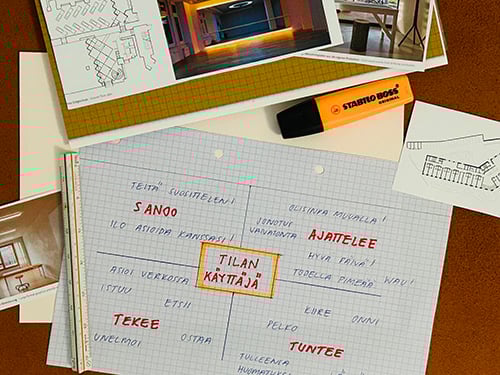 STABILO BOSS
ORIGINAL
TEITÄ SUOSITTELEN!
SANOO
ILO ASIOIDA KANSSASI!
OLISINPA MUUALLA!
JONOTUS
VAIVATONTA
AJATTELEE
HYVÄ PÄIVÄ!
TODELLA PIMEÄÄ
WAU!
TILAN
KÄYTTÄJÄ
ASIOI VERKOSTA
ISTUU
ETSII
TEKEE
UNELMOI
OSTAA
KIIRE
ONNI
PELKO
TUNTEE
TULLEENSA